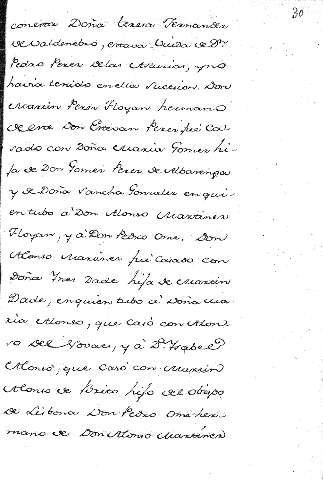 30
con esta Doña Teresa Fernandez
de Valdenebro, estava Viuda de Dn
Pedro Perez de las Asturias, y no
havia tenido en ella succesion. Don
Martin Perez Floyan hermano
de este Don Estevan Perez fué Ca-
sado con Doña Maria Gomez hi-
ja de Don Gomez Perez de Albarenga
y de Doña Sancha Gonzalez en qui-
en tubo á Don Alonso Martinez
Floyan, y á Don Pedro Ome. Don
Alonso Martinez fué Casado con
Doña Ines Dade hija de Martin
Dade, en quien tubo á Doña Ma-
ria Alonso, que casó con Alon-
so de Novaes, y á Da. Ysabel
Alonso, que casó con Martin
Alonso de Brito hijo del Obispo
de Lisbona Don Pedro Ome her-
mano de Don Alonso Martinez